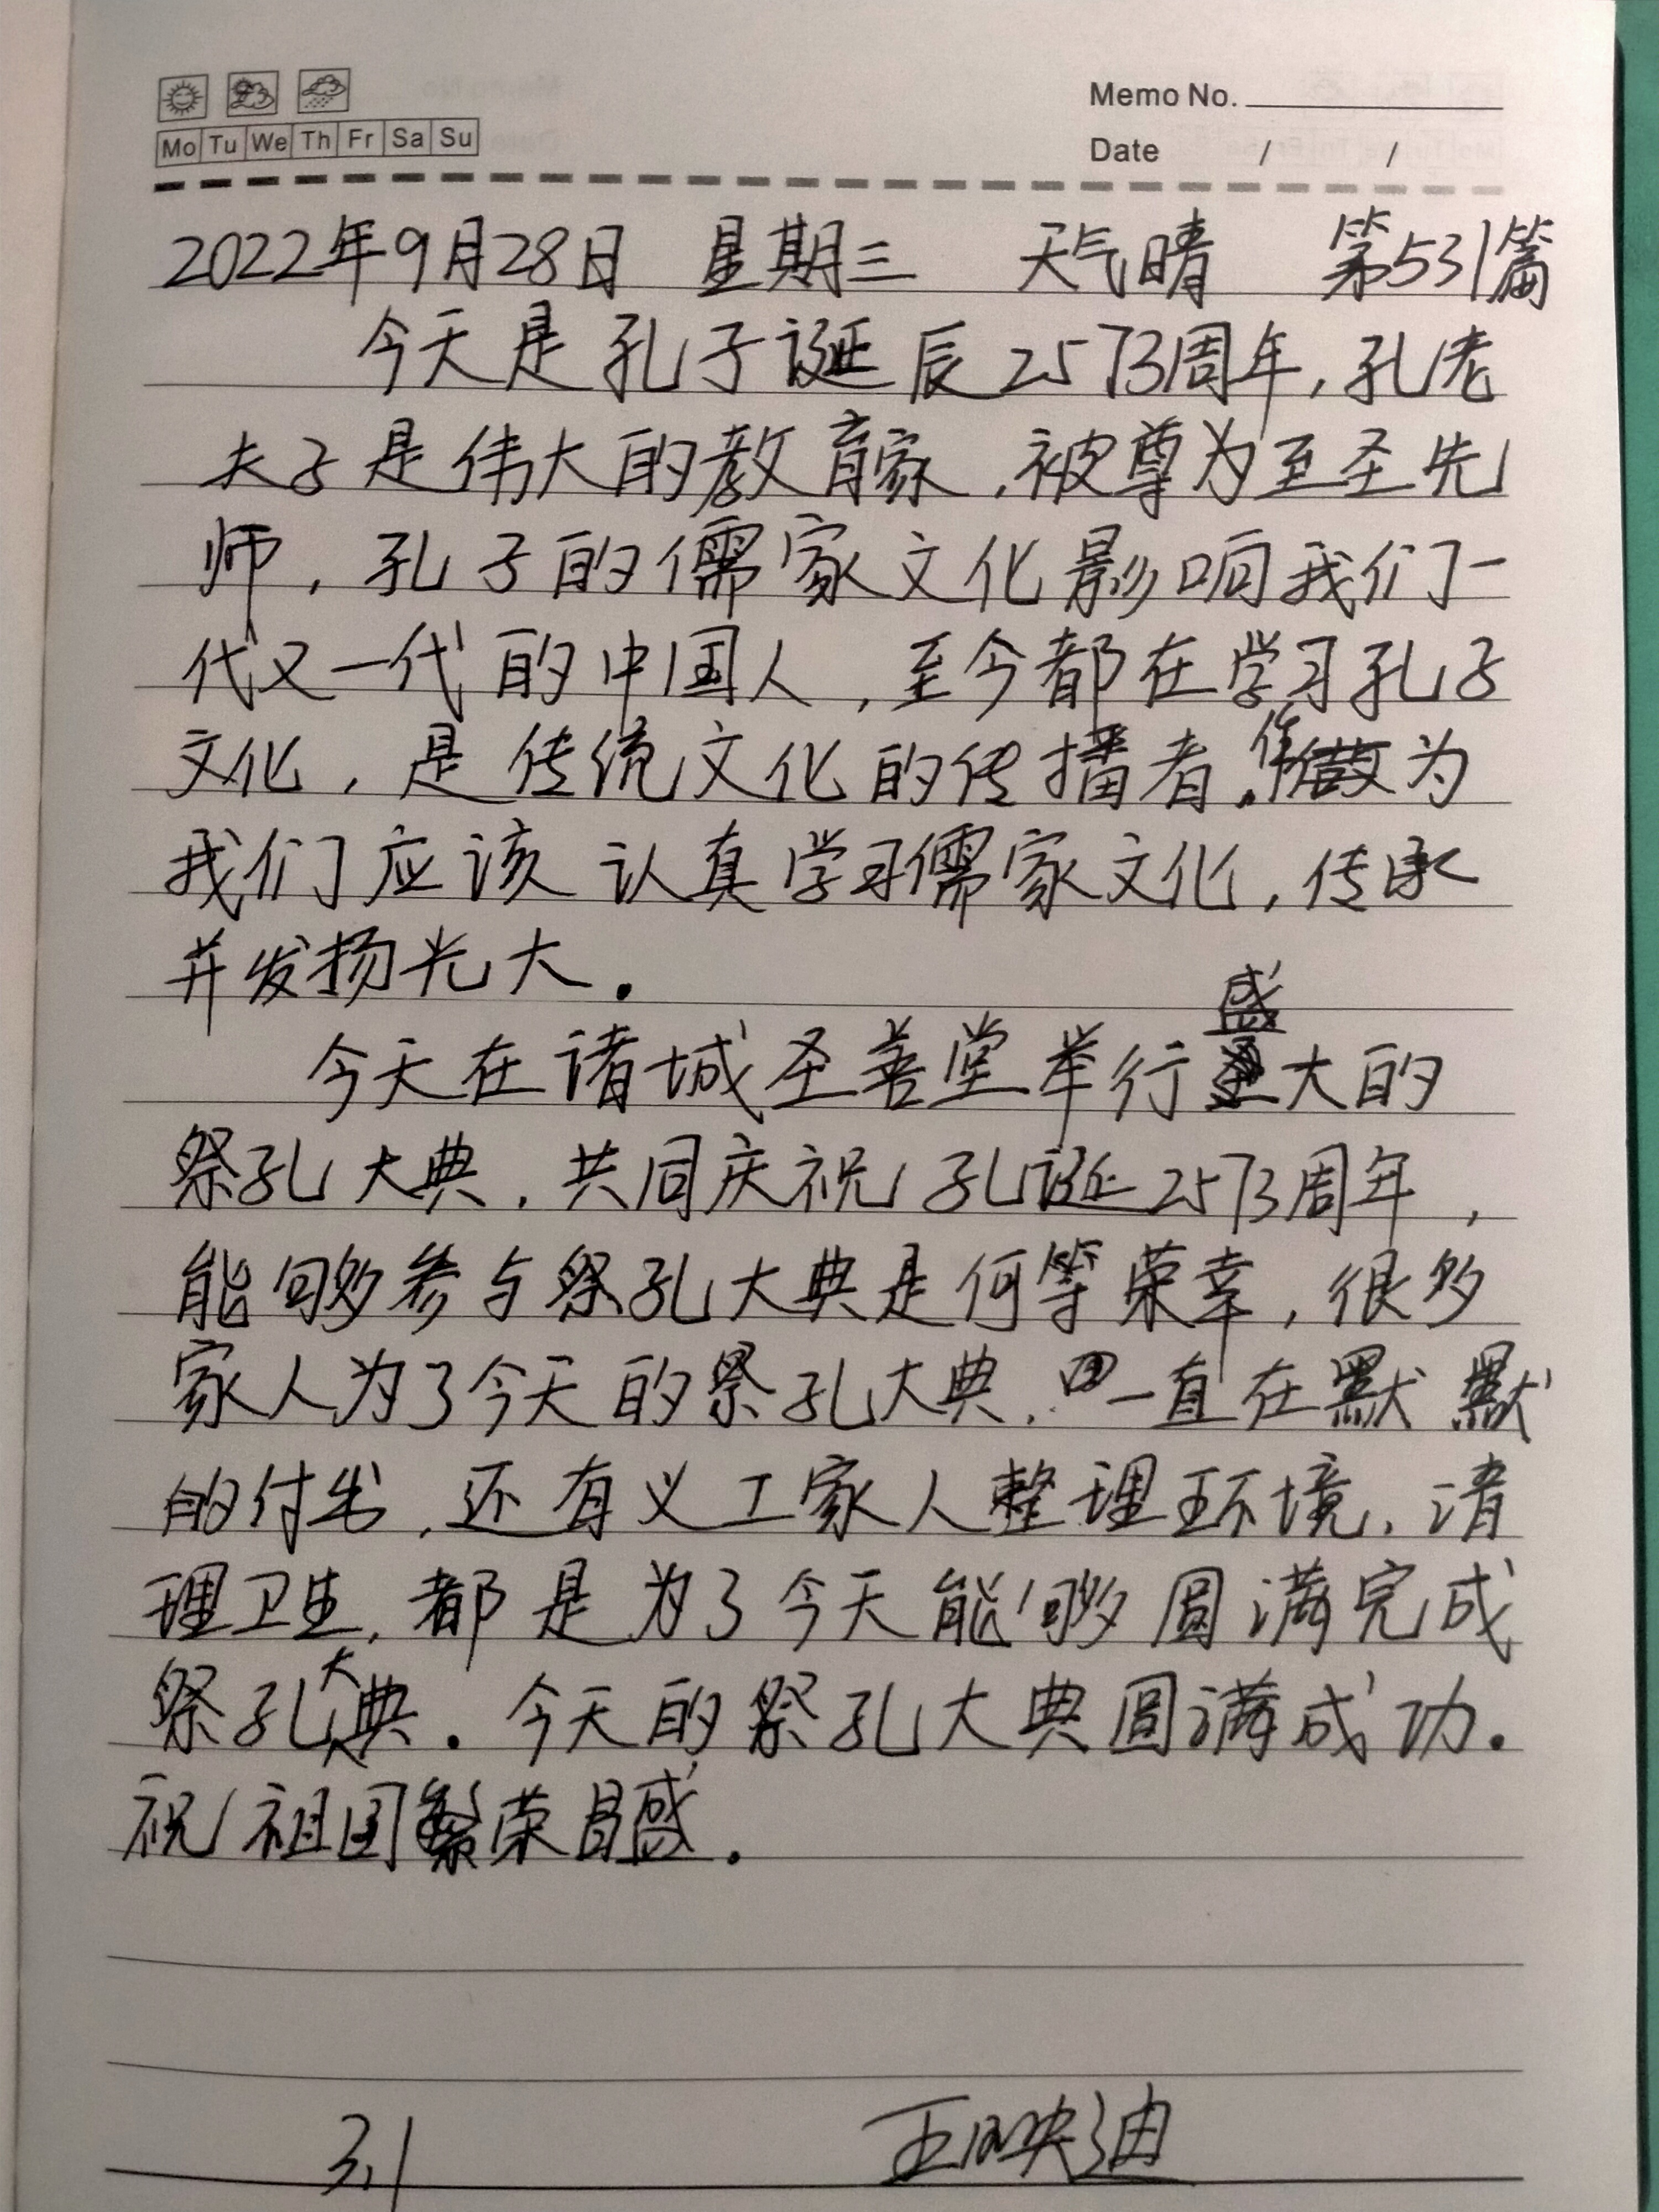 Memo No.
Mo Tu We Th Fr Sa Su
Date / /
2022年9月28日 星期三 天气晴 第531篇
今天是孔子诞辰2573周年,孔老
夫子是伟大的教育家,被尊为至圣先
师,孔子的儒家文化影响我们一
代又一代的中国人,至今都在学习孔子
文化,是传统文化的传播者.作为
我们应该认真学习儒家文化,传承
并发扬光大.
今天在诸城圣善堂举行盛大的
祭孔大典,共同庆祝孔诞2573周年,
能够参与祭孔大典是何等荣幸,很多
家人为了今天的祭孔大典,一直在默默
的付出,还有义工家人整理环境,清
理卫生,都是为了今天能够圆满完成
祭孔大典.今天的祭孔大典圆满成功.
祝祖国繁荣昌盛.